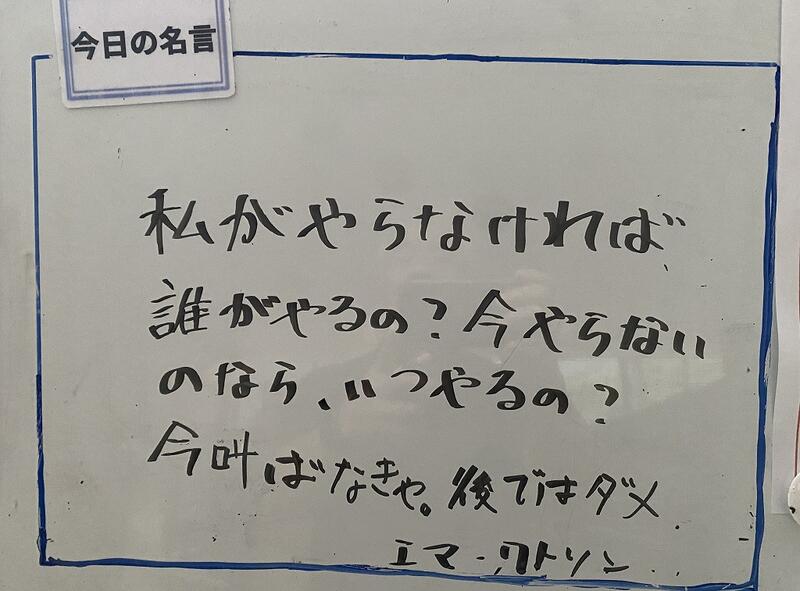 今日の名言
私がやらなければ
誰がやるの？今やらない
のなら、いつやるの？
今叫ばなきゃ。後ではダメ
エマ・ワトソン